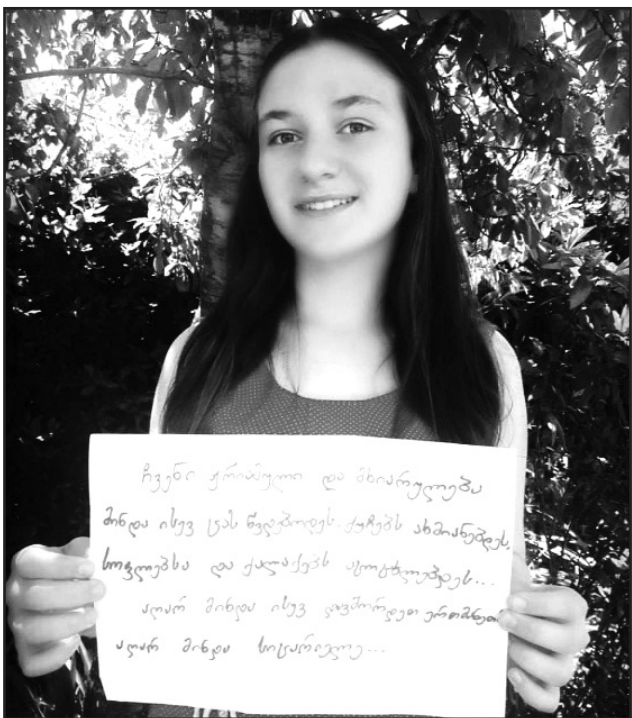 ჩვენი ჟრიამული და მხიარულება
მინდა ისევ ცას წვდებოდეს. ქუჩებს ახმიანებდეს,
სოფლებსა და ქალაქებს აცოცხლებდეს...
აღარ მინდა ისევ დავშორდეთ ერთმანეთს
აღარ მინდა სიცარიელე...